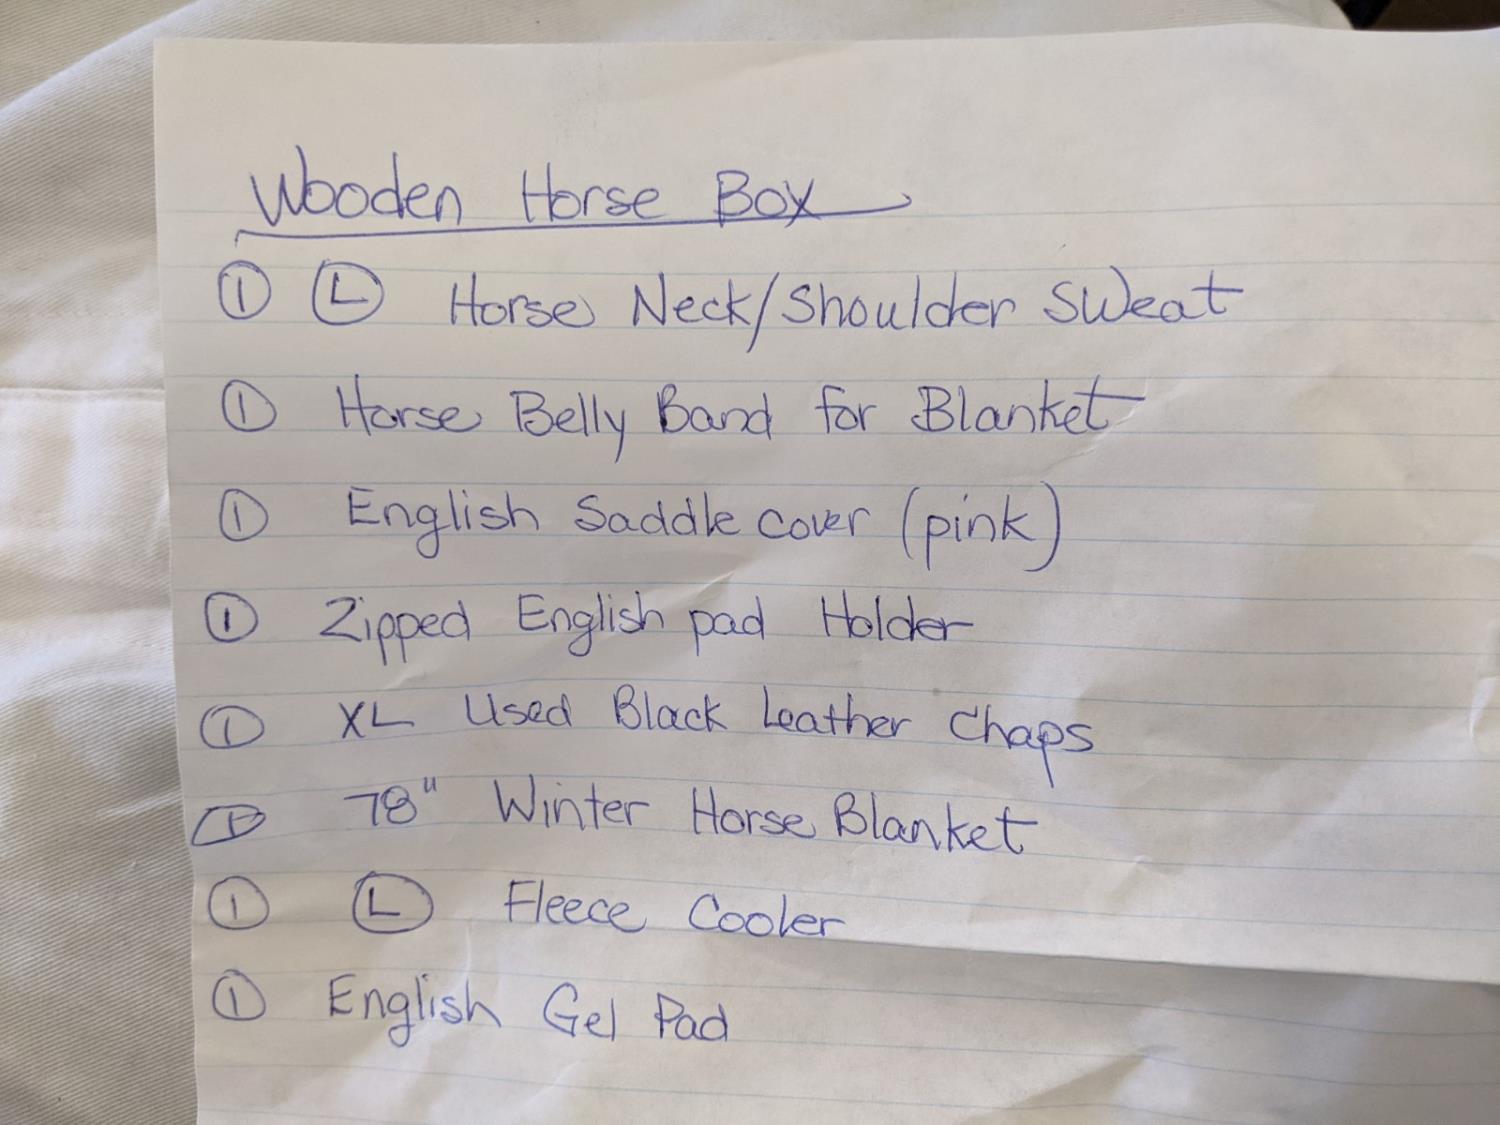 Wooden Horse Box
① Ⓛ Horse Neck/Shoulder Sweat
① Horse Belly Band for Blanket
① English Saddle cover (pink)
① Zipped English pad Holder
① XL Used Black Leather Chaps
① 78" Winter Horse Blanket
① Ⓛ Fleece Cooler
① English Gel Pad